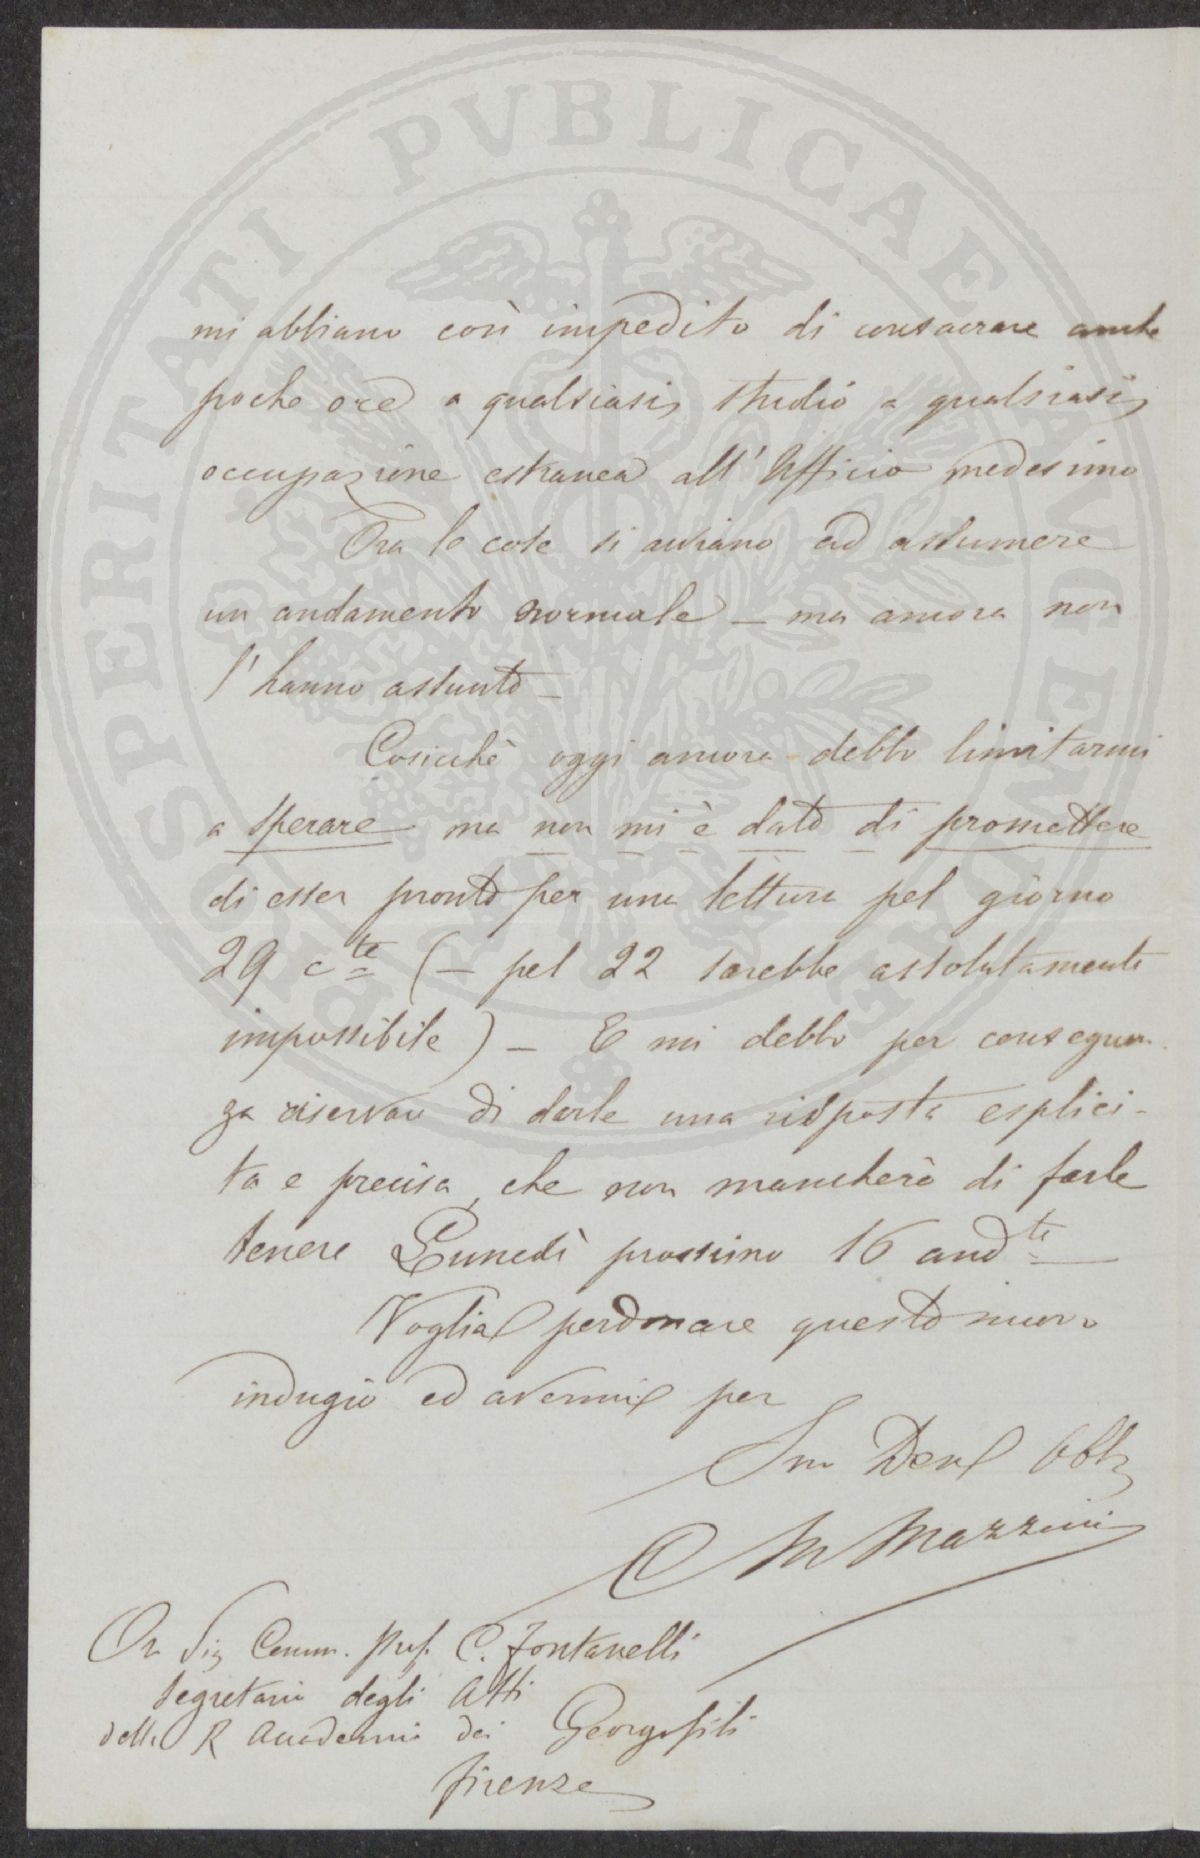 PROSPERITATI PVBLICAE AVGENDAE
mi abbiano così impedito di consacrare anche
poche ore a qualsiasi studio a qualsiasi
occupazione estranea all'Ufficio medesimo
Ora le cose si avviano ad assumere
un andamento normale – ma ancora non
l'hanno assunto –
Cosicchè oggi ancora debbo limitarmi
a sperare ma non mi è dato di promettere
di esser pronto per una lettura pel giorno
29 cte (– pel 22 sarebbe assolutamente
impossibile) – E mi debbo per conseguen-
za riservare di darle una risposta esplici-
ta e precisa, che non mancherò di farle
tenere Lunedì prossimo 16 andte
Voglia perdonare questo nuovo
indugio ed avermi per
Suo Dev Obb
C M Mazzini
On Sig Comm. Prof. C. Fontanelli
Segretario degli Atti
della R Accademia dei Georgofili
Firenze